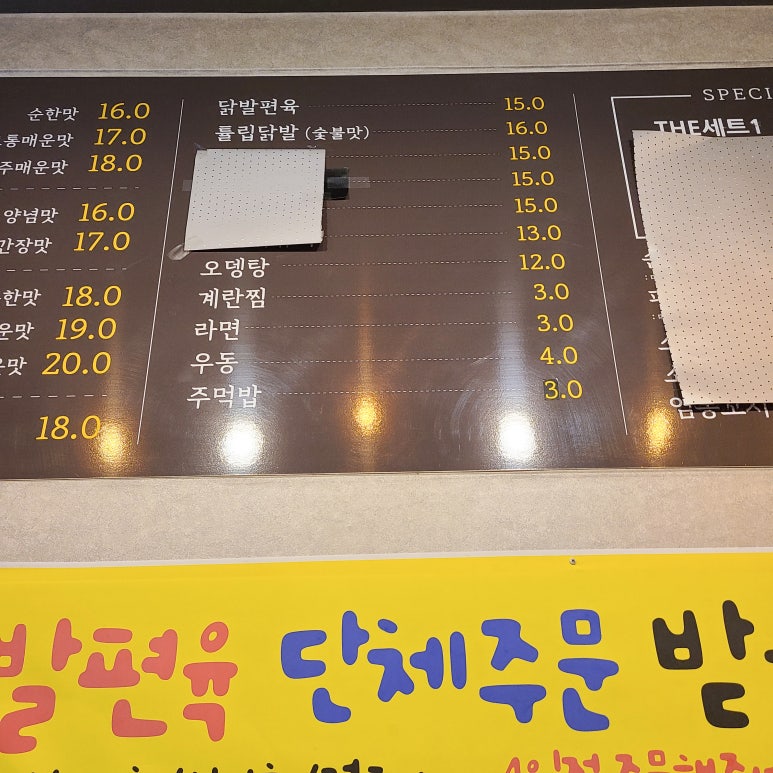 순한맛 16.0
통매운맛 17.0
주매운맛 18.0
양념맛 16.0
간장맛 17.0
한맛 18.0
운맛 19.0
맛 20.0
18.0
닭발편육 15.0
튤립닭발 (숯불맛) 16.0
15.0
15.0
15.0
13.0
오뎅탕 12.0
계란찜 3.0
라면 3.0
우동 4.0
주먹밥 3.0
SPECI
THE세트1
발편육 단체주문 받